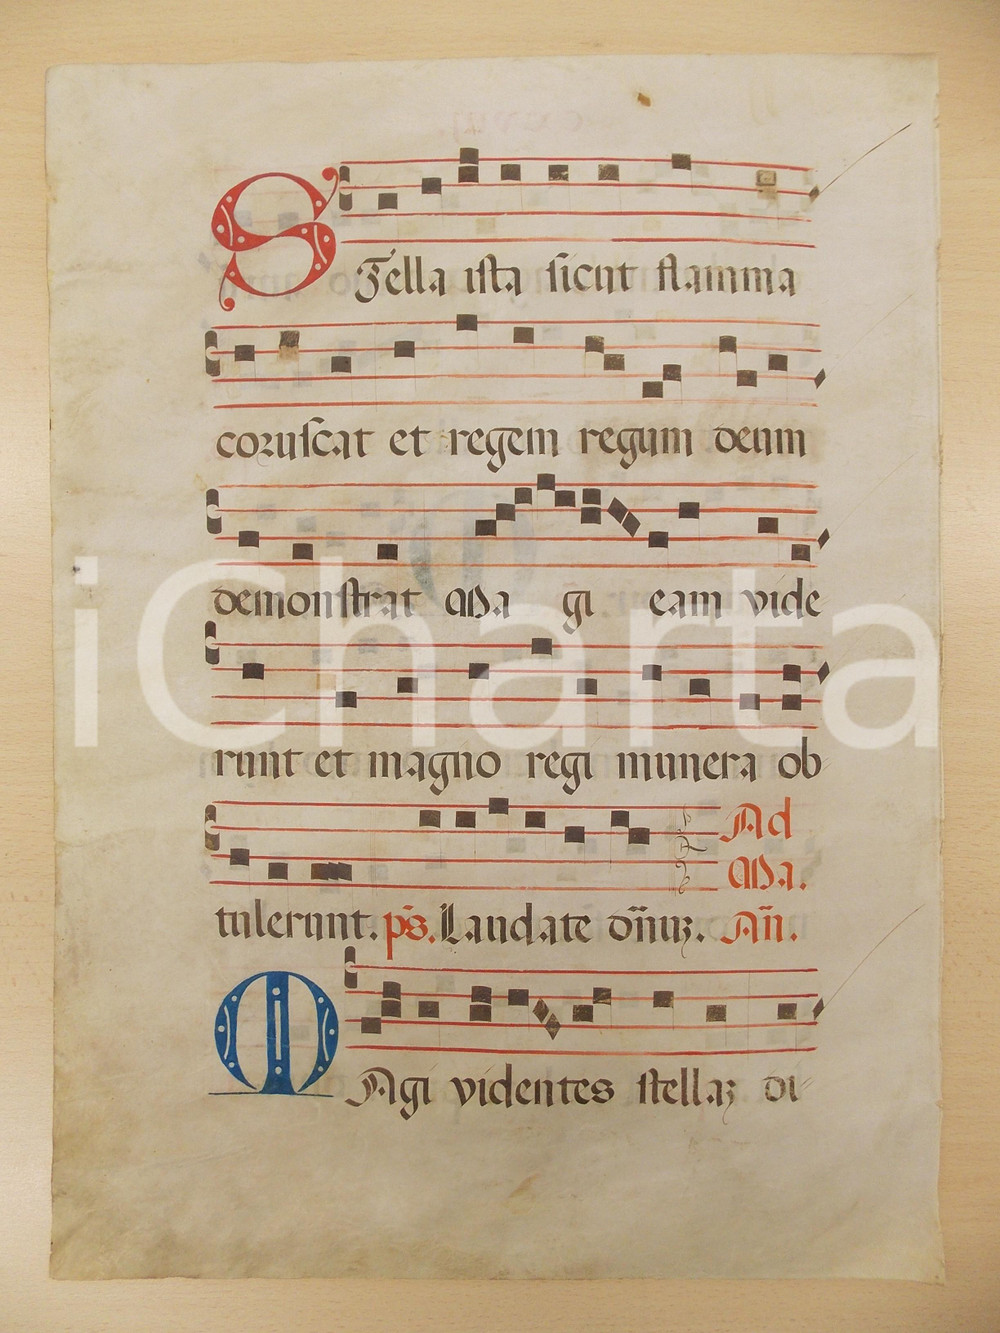 STella ista sicut flamma
coruscat et regem regum deum
demonstrat Magi eam vide
runt et magno regi munera ob
Ad
Ma.
tulerunt. p̄s. Laudate dn̄uꝫ. An̄.
MAgi videntes stellaꝫ di
iCharta